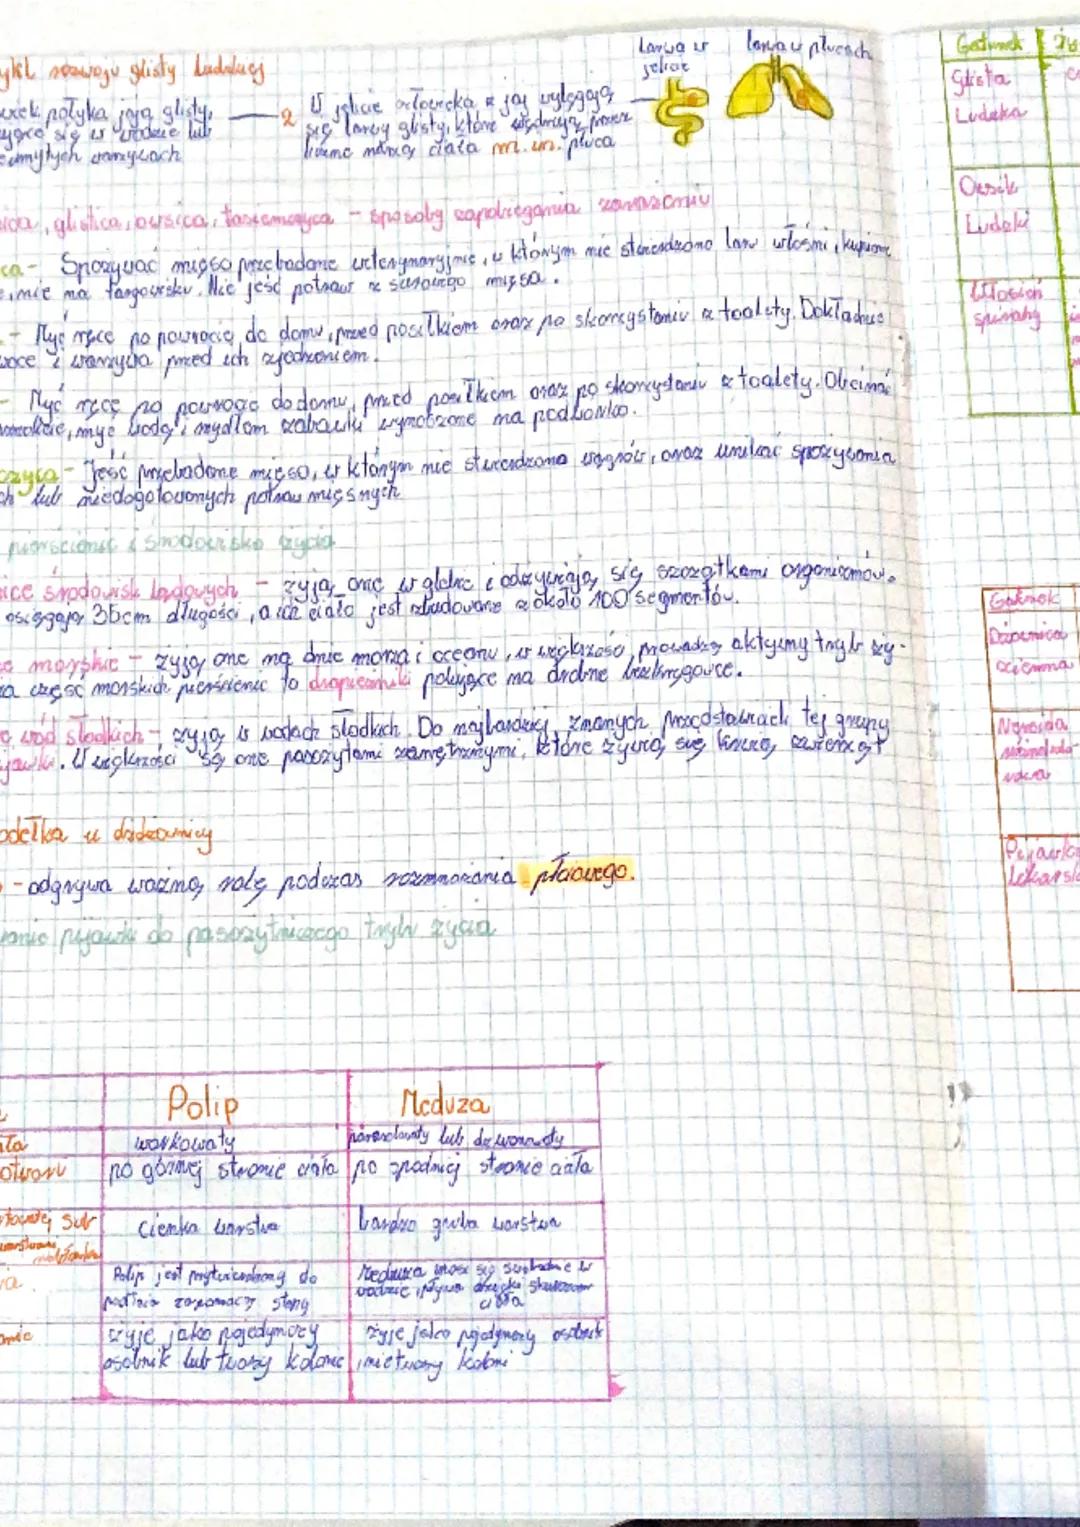 ykl rozwoju glisty ludzkiej
Larwa w jelicie
larwa w płucach
wiek połyka jaja glisty,
się w wodzie lub
warzywach
2 W jelicie człowieka z jaj wylęgają
się larwy glisty, które wędrują przez
ciała m.in. płuca
glistica, owsica, tasiemczyca - sposoby zapobiegania zarażeniu
ca - Spożywać mięso przebadane weterynaryjnie, w którym nie stwierdzono larw włośni, kupione
nie na targowisku. Nie jeść potraw z surowego mięsa.
- Myć ręce po powrocie do domu, przed posiłkiem oraz po skorzystaniu z toalety. Dokładnie
woce i warzywa przed ich zjedzeniem.
- Myć ręce po powrocie do domu, przed posiłkiem oraz po skorzystaniu z toalety. Obcinać
myć wodą i mydłem zabawki wynoszone na podwórko.
czyca - Jeść przebadane mięso, w którym nie stwierdzono wągrów, oraz unikać spożywania
ch lub niedogotowanych potraw mięsnych
pierścienic i środowisko życia
ice środowisk lądowych - żyją one w glebie i odżywiają się szczątkami organizmów.
osiągają 36cm długości, a ich ciało jest zbudowane z około 100 segmentów.
morskie - żyją one na dnie morza i oceanu, w większości prowadzą aktywny tryb ży-
część morskich pierścienic to drapieżniki polujące na drobne bezkręgowce.
wód słodkich - żyją w wodach słodkich. Do najbardziej znanych przedstawicieli tej grupy
jawki. W większości są one pasożytami zewnętrznymi, które żywią się krwią zwierząt
odełka u dżdżownicy
- odgrywa ważną rolę podczas rozmnażania płciowego.
anie pijawki do pasożytniczego trybu życia
Polip
Meduza
workowaty
lub dzwonowaty
po górnej stronie ciała
po spodniej stronie ciała
Cienka warstwa
bardzo gruba warstwa
Polip jest przytwierdzony do
podłoża zapomocą stopy
Meduza unosi się swobodnie w
wodzie, pływa dzięki skurczom
ciała
żyje jako pojedynczy
osobnik lub tworzy kolonie
żyje jako pojedynczy osobnik
, nie tworzy kolonii
Gatunek
Glista
Ludzka
Owsik
Ludzki
Włosień
spiralny
Gatunek
Dżdżownica
ziemna
Nereida
Pijawka
Lekarska